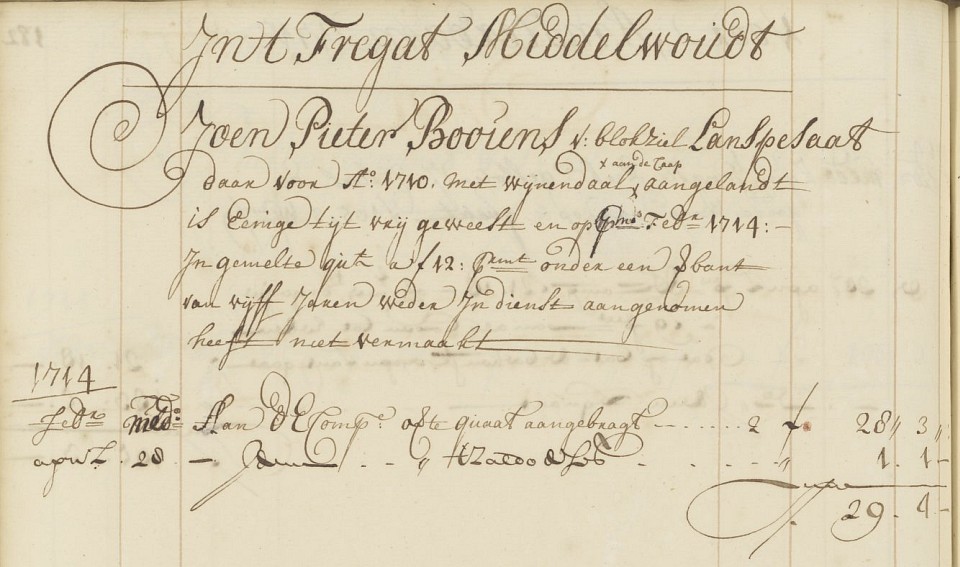 In't Fregat Middelwoudt
Joen Pieter Booiens v: blokziel Lanspesaat
x aan de Caap
daar voor Ao. 1710. met wijnendaal x aangelandt
is Eenige tijt vrij geweest en op Pmo. Febr. 1714: -
In gemelte qut. a f 12: Pr mt onder een Vbant
van vijff Jaren weder In dienst aangenomen
heeft niet vermaakt
1714
Febr. Aan D'E Compe. ofte quaat aangebragt - - . . . . . 2 f 28 " 3 "
april . 28 - . . " 't Zaldo deses . . - . - " 1 . 1 -
29 . 4 -